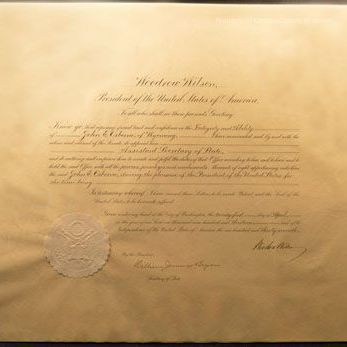 Woodrow Wilson,
President of the United States of America.
To all who shall see these presents Greeting:
Know ye that reposing special trust and confidence in the Integrity and Ability
of John E. Osborne, of Wyoming, I have nominated and by and with the
advice and consent of the Senate do appoint him
Assistant Secretary of State,
and do authorize and empower him to execute and fulfil the duties of that Office according to law, and to have and to
hold the said Office with all the powers, privileges and emoluments thereunto of right appertaining unto him
the said John E. Osborne, during the pleasure of the President of the United States for
the time being.
In testimony whereof I have caused these Letters to be made Patent and the Seal of the
United States to be hereunto affixed.
Given under my hand at the City of Washington the twenty-first day of April
Independence of the United States of America the one hundred and thirty-seventh.
Woodrow Wilson
By the President:
William Jennings Bryan
Secretary of State.